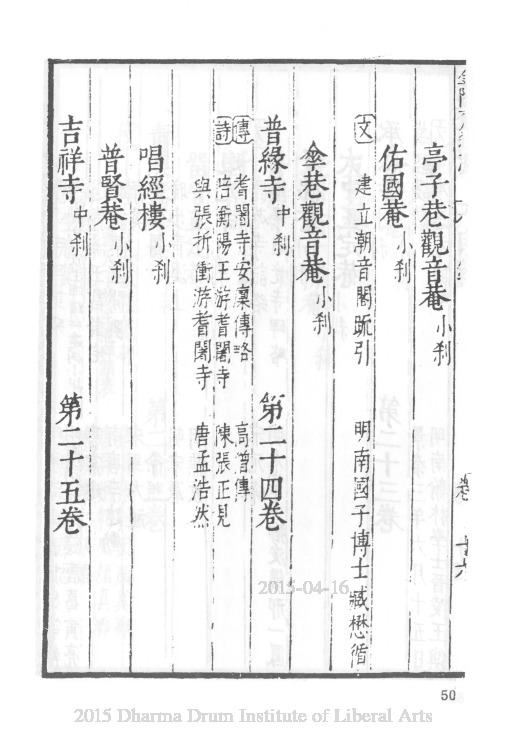 亭子巷觀音菴小刹
佑國菴小刹
文 建立潮音閣疏引 明南國子博士臧懋循
傘巷觀音菴小刹
普緣寺中刹 第二十四卷
傳 耆闍寺安廩傳略 高僧傳
詩 陪衡陽王游耆闍寺 陳張正見
與張折衝游耆闍寺 唐孟浩然
唱經樓小刹
普賢菴小刹
吉祥寺中刹 第二十五卷
2015-04-16
50
2015 Dharma Drum Institute of Liberal Arts